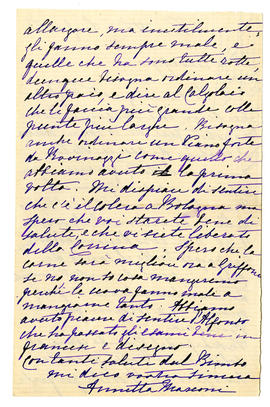 allargare, ma inutilmente,
gli fanno sempre male, e
quelle che ha sono tutte rotte,
dunque bisogna ordinare un
altro paio, e dire al Calzolaio
che le faccia più grande colle
punte più larghe. Bisogna
anche ordinare un Pianoforte
da Brovinazzi come quello che
abbiamo avuto la prima
volta. Mi dispiace di sentire
che c'è il colera a Bologna ma
spero che voi starete bene di
salute, e che vi siete liberato
della. Spero che la
carne sarà migliore ora al Griffone
se no non so cosa mangeremo
perchè le uova fanno male a
mangiarne tanto. Abbiamo
avuto piacere di sentire che Alfonso
che ha passato gli esami bene in
francese e disegno.
Con tante salute dal Bimbo
mi dico vostra
Annetta Marconi